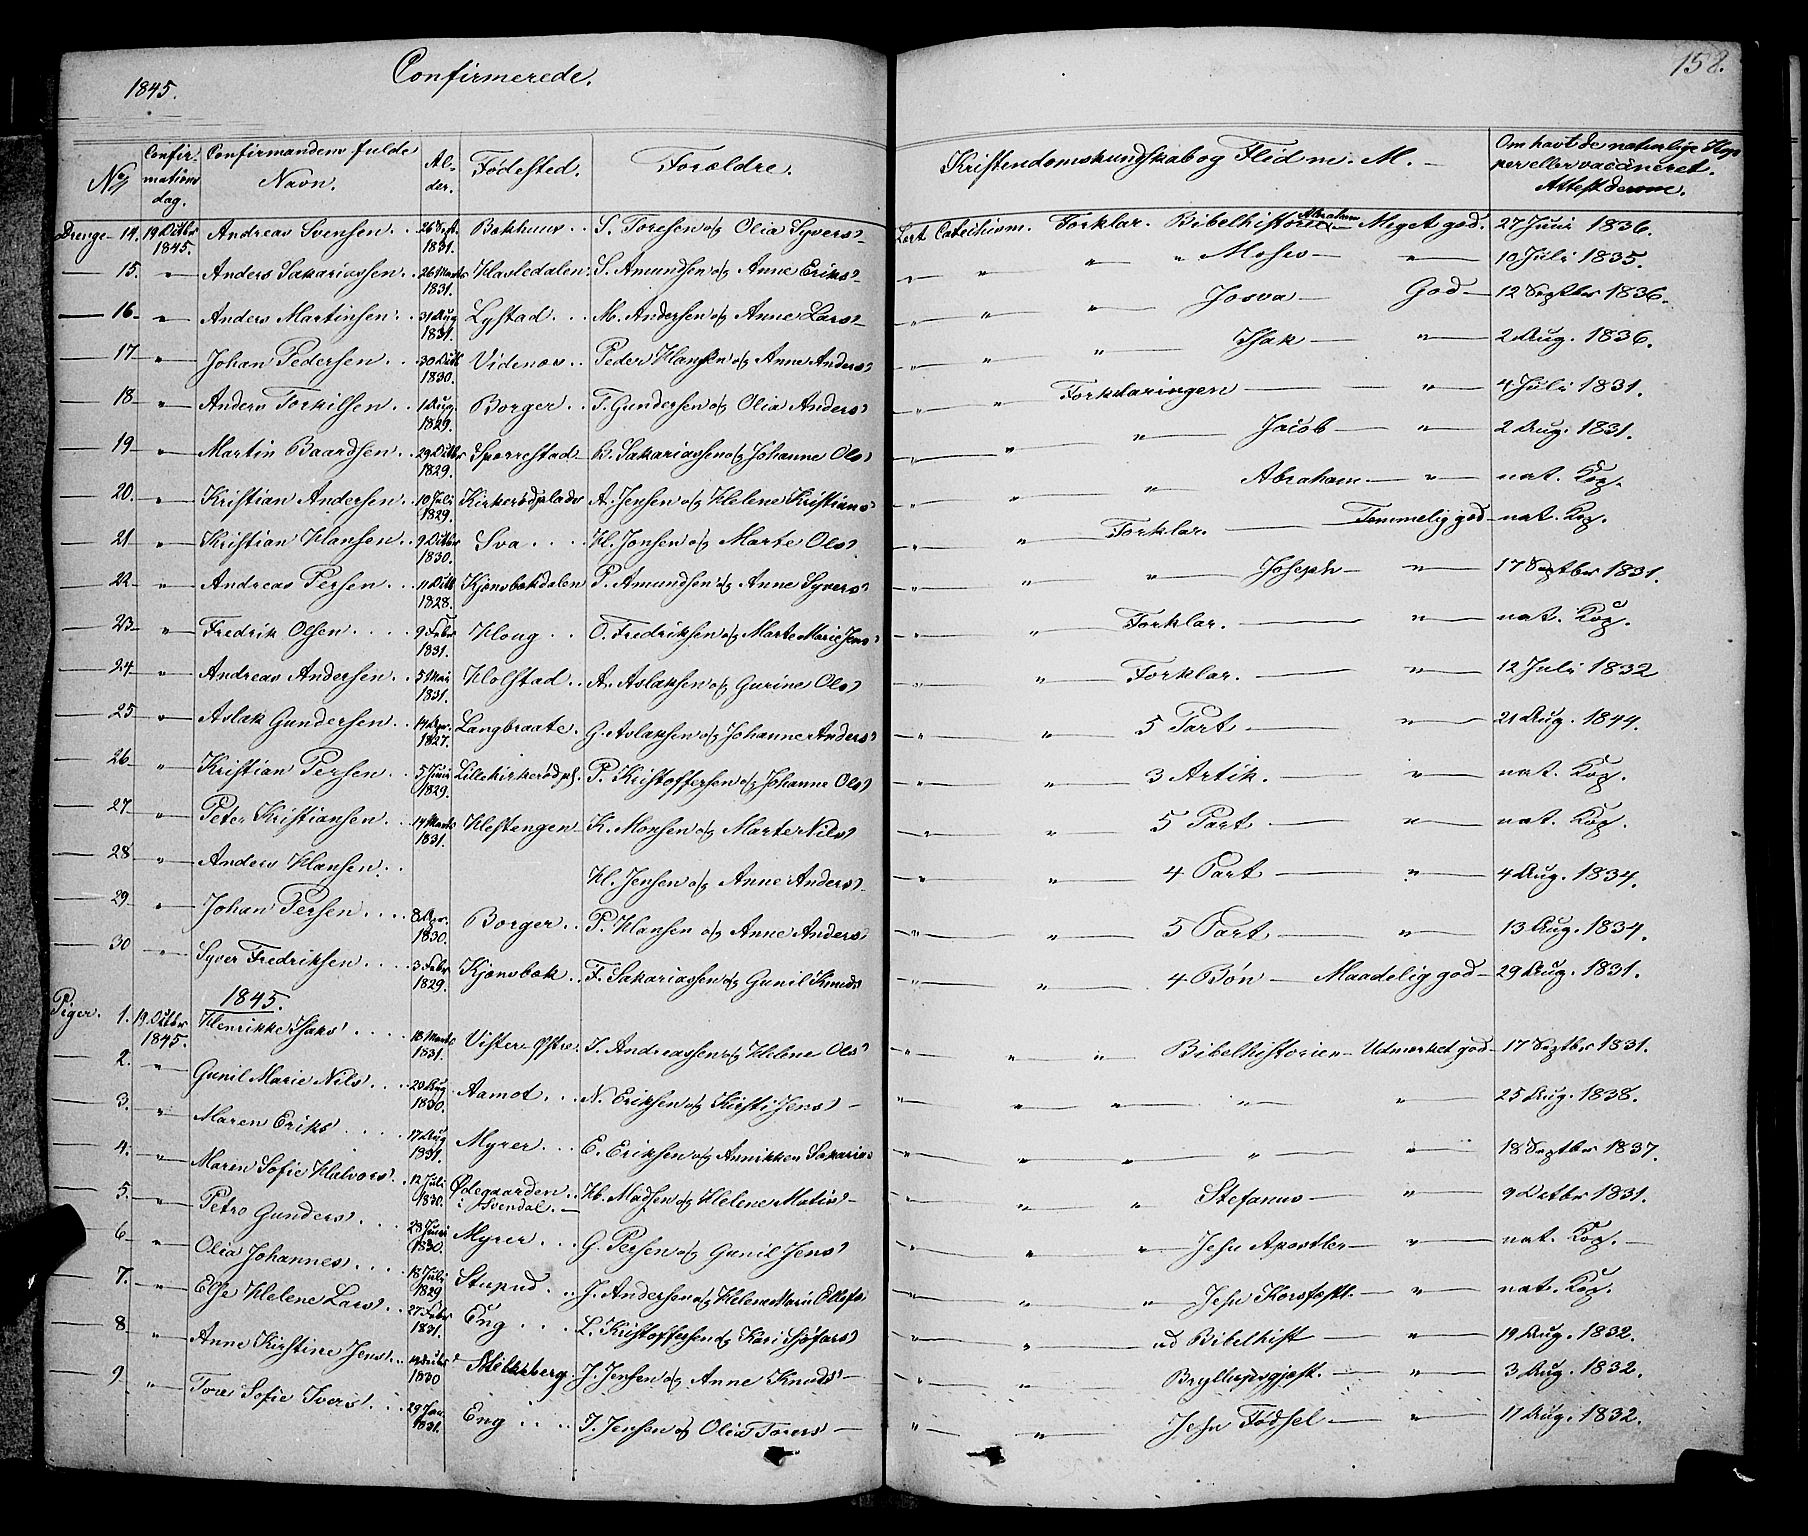 1845. Confirmerede. 158.
No Confirmations dag. Confirmandens fulde Navn. Alder. Fødested. Forældre. Kristendomskundskab og Flid m. M. Om havt de naturlige Kopper eller vaccineret. Attest derom.
Drenge 14. 19 Octbr 1845. Andreas Svensen 26 Sept. 1831. Bakhuus S. Toresen og Olia Syvers Lært Catechism. Forklar. Bibelhistorie Abraham Meget god. 27 Juni 1836.
15. " Anders Sakariassen 26 Marts 1831. Hasledalen S. Amundsen og Anne Eriks " " " " Moses " 10 Juli 1835.
16. " Anders Martinsen 31 Aug 1831. Lystad M. Andersen og Anne Lars " " " Josva God 12 Septbr 1836.
17 " Johan Pedersen 30 Oct 1830. Videnes Peder Hansen og Anne Anders " " " Isak " 2 Aug. 1836.
18. " Anders Torkilsen 1 Aug. 1829. Borger T. Gundersen og Olia Anders " " Forklaringen " 4 Juli 1831.
19 " Martin Baardsen 29 Octbr 1829. Sporrestad B. Sakariassen og Johanne Ols " " " Jacob " 2 Aug. 1831.
20. " Kristian Andersen 10 Juli 1829. Kirkerødplads A. Jensen og Helene Kristians " " " Abraham " nat. Kop.
21 " Kristian Hansen 9 Octbr 1830. Sva H. Jonsen og Marte Ols " " Forklar. Temmelig god nat. Kop.
22 " Andreas Persen 11 Oct 1828. Kjønsbækdalen P. Amundsen og Anne Syvers " " " Joseph " 17 Septbr 1831.
23 " Fredrik Olsen 9 Febr 1831. Houg O. Fredriksen og Marte Marie Jens " " Forklar. " nat. Kop.
24 " Andreas Andersen 5 Mai 1831. Holstad A. Aslaksen og Gurine Ols " " Forklar. " 12 Juli 1832
25 " Aslak Gundersen 1827. Langbraate G. Aslaksen og Johanne Anders " " 5 Part " 21 Aug. 1844.
26 " Kristian Persen 5 Juni 1829. Lillekirkerødpl. P. Kristoffersen og Johanne Ols " " 3 Artik. " nat. Kop.
27 " Peter Kristiansen 14 Marts 1831. Hestengen K. Monsen og Marte Nils " " 5 Part " nat. Kop.
28 " Anders Hansen H. Jensen og Anne Anders " " 4 Part " 4 Aug. 1834.
29 " Johan Persen 1830. Borger P. Hansen og Anne Anders " " 5 Part " 13 Aug. 1834.
30 " Syver Fredriksen 3 Febr 1829. Kjønsbæk F. Sakariassen og Gunil Knuds " " 4 Bøn Maadelig god 29 Aug. 1831.
1845.
Piger. 1. 19. Octbr 1845. Henrikke Isaks 18 Marts 1831. Vister Østre I. Andreassen og Helene Ols " " " Bibelhistorien Udmærket god 17 Septbr 1831.
2. " Gunil Marie Nils 20 Aug 1830. Aamot N. Eriksen og Kirsti Jens " " " " 25 Aug. 1838.
3. " Maren Eriks 17 Aug 1831. Myrer E. Eriksen og Annikken Sakarias " " " " " 18 Septbr 1837.
4. " Maren Sofie Halvors 12 Juli 1830. Ødegaarden i Svendal. H. Madsen og Helene Matis " " " Stefanus " 9 Octbr 1831.
5. " Petro Gunders 23 Juni 1830. Myrer G. Persen og Gunil Jens " " " Jesu Apostler " nat. Kop.
6 " Olia Johannes 18 Juli 1829. Stupud J. Andersen og Helene Marie " " " Jesu Korsfæst. " nat. Kop.
7. " Else Helene Lars 27 Febr 1831. Eng L. Kristoffersen og Kari " " ud Bibelhist " 19 Aug. 1832.
8. " Anne Kirstine Jens 1830 J. Jensen og Anne Knuds " " Bryllupsgjæst. " 3 Aug. 1832.
9 " Tore Sofie Ivers 29 Jan. 1831. Eng I. Jensen og Olia Torers " " Jesu Fødsel " 11 Aug. 1832.